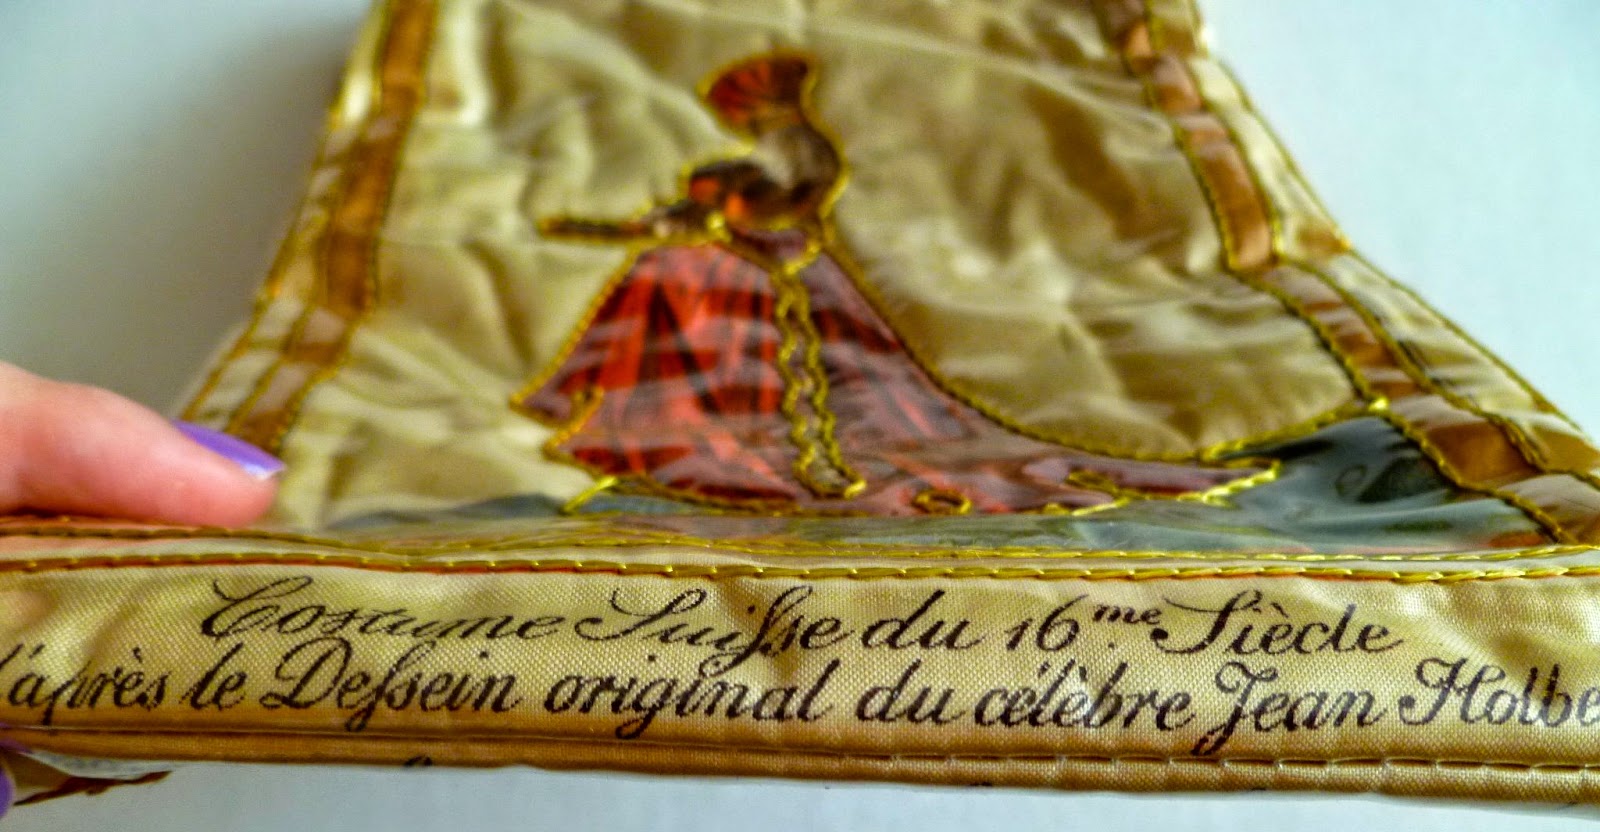 Costume Suiſse du 16.me Siècle
d'après le Deſsein original du célèbre Jean Holbe